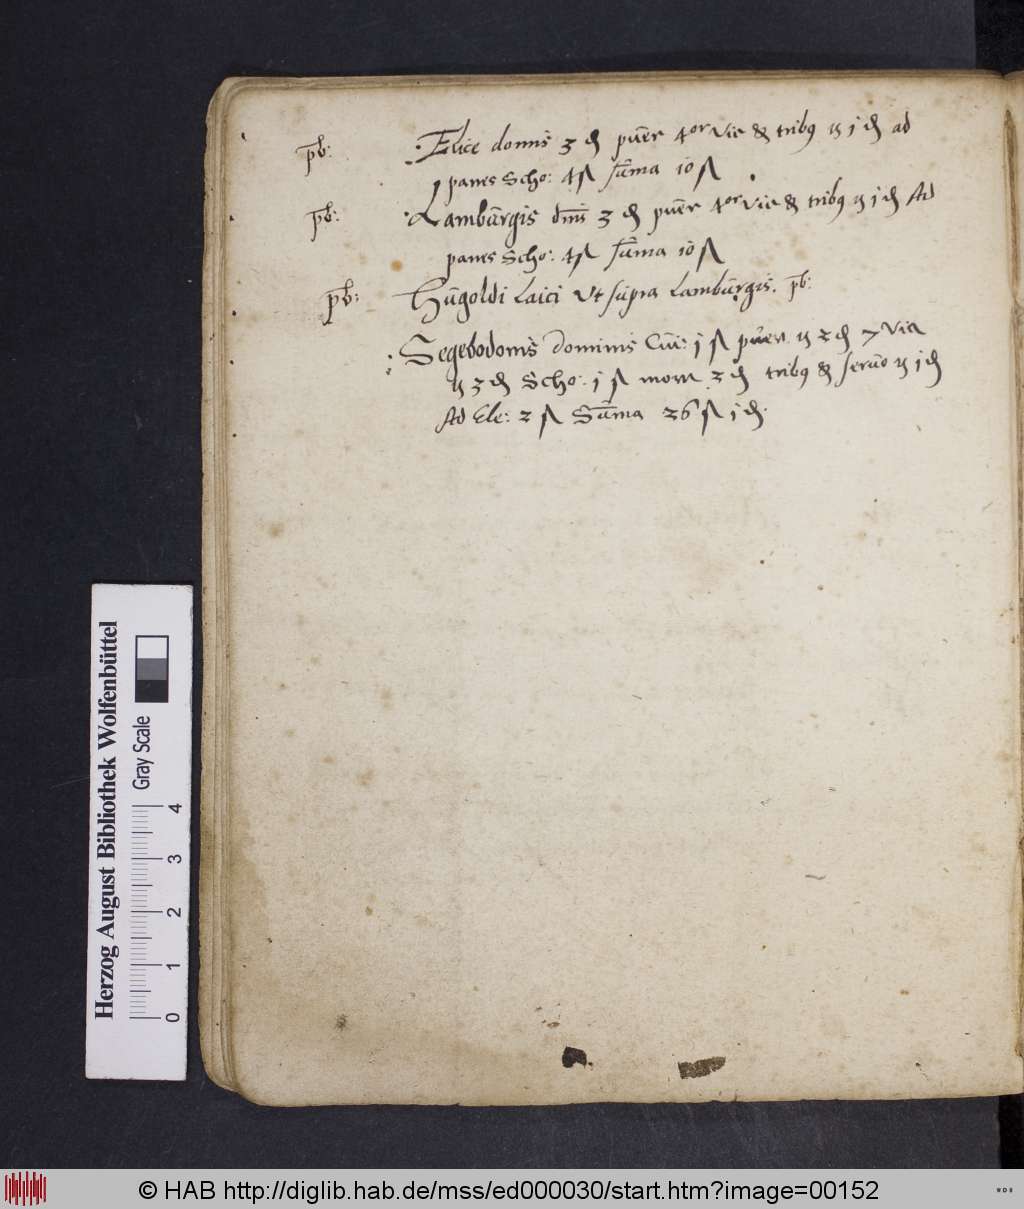 pb: Elice domīs 3 ₰ puēr 4or vic & tribꝯ ʒ j ₰ ad
panes Scho: 4 ſ sūma 10 ſ
pb: Lamburgis dm̄s 3 ₰ puēr 4or vic & tribꝯ ʒ j ₰ Ad
panes Scho: 4 ſ sūma 10 ſ
pb: Hŭgoldi Laici Vt sŭpra Lambŭrgis. pb:
Segebodonis dominis j ſ puer 2 ₰ 7 Vic
3 ₰ Scho: j ſ 3 ₰ tribꝯ & seruo j ₰
Ad Ele: 2 ſ Sūma 26 ſ j ₰.
Herzog August Bibliothek Wolfenbüttel
Gray Scale
0 1 2 3 4
© HAB http://diglib.hab.de/mss/ed000030/start.htm?image=00152